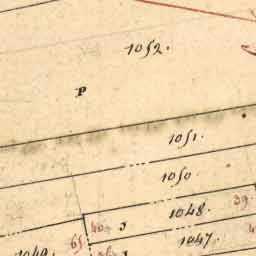 1052.
P
1051.
1050
39.
1048.
40
J
65
1047.
1049.
J